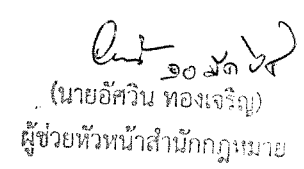 ๑๐ มี.ค. ๖๕
(นายอัศวิน ทองเจริญ)
ผู้ช่วยหัวหน้าสำนักกฎหมาย